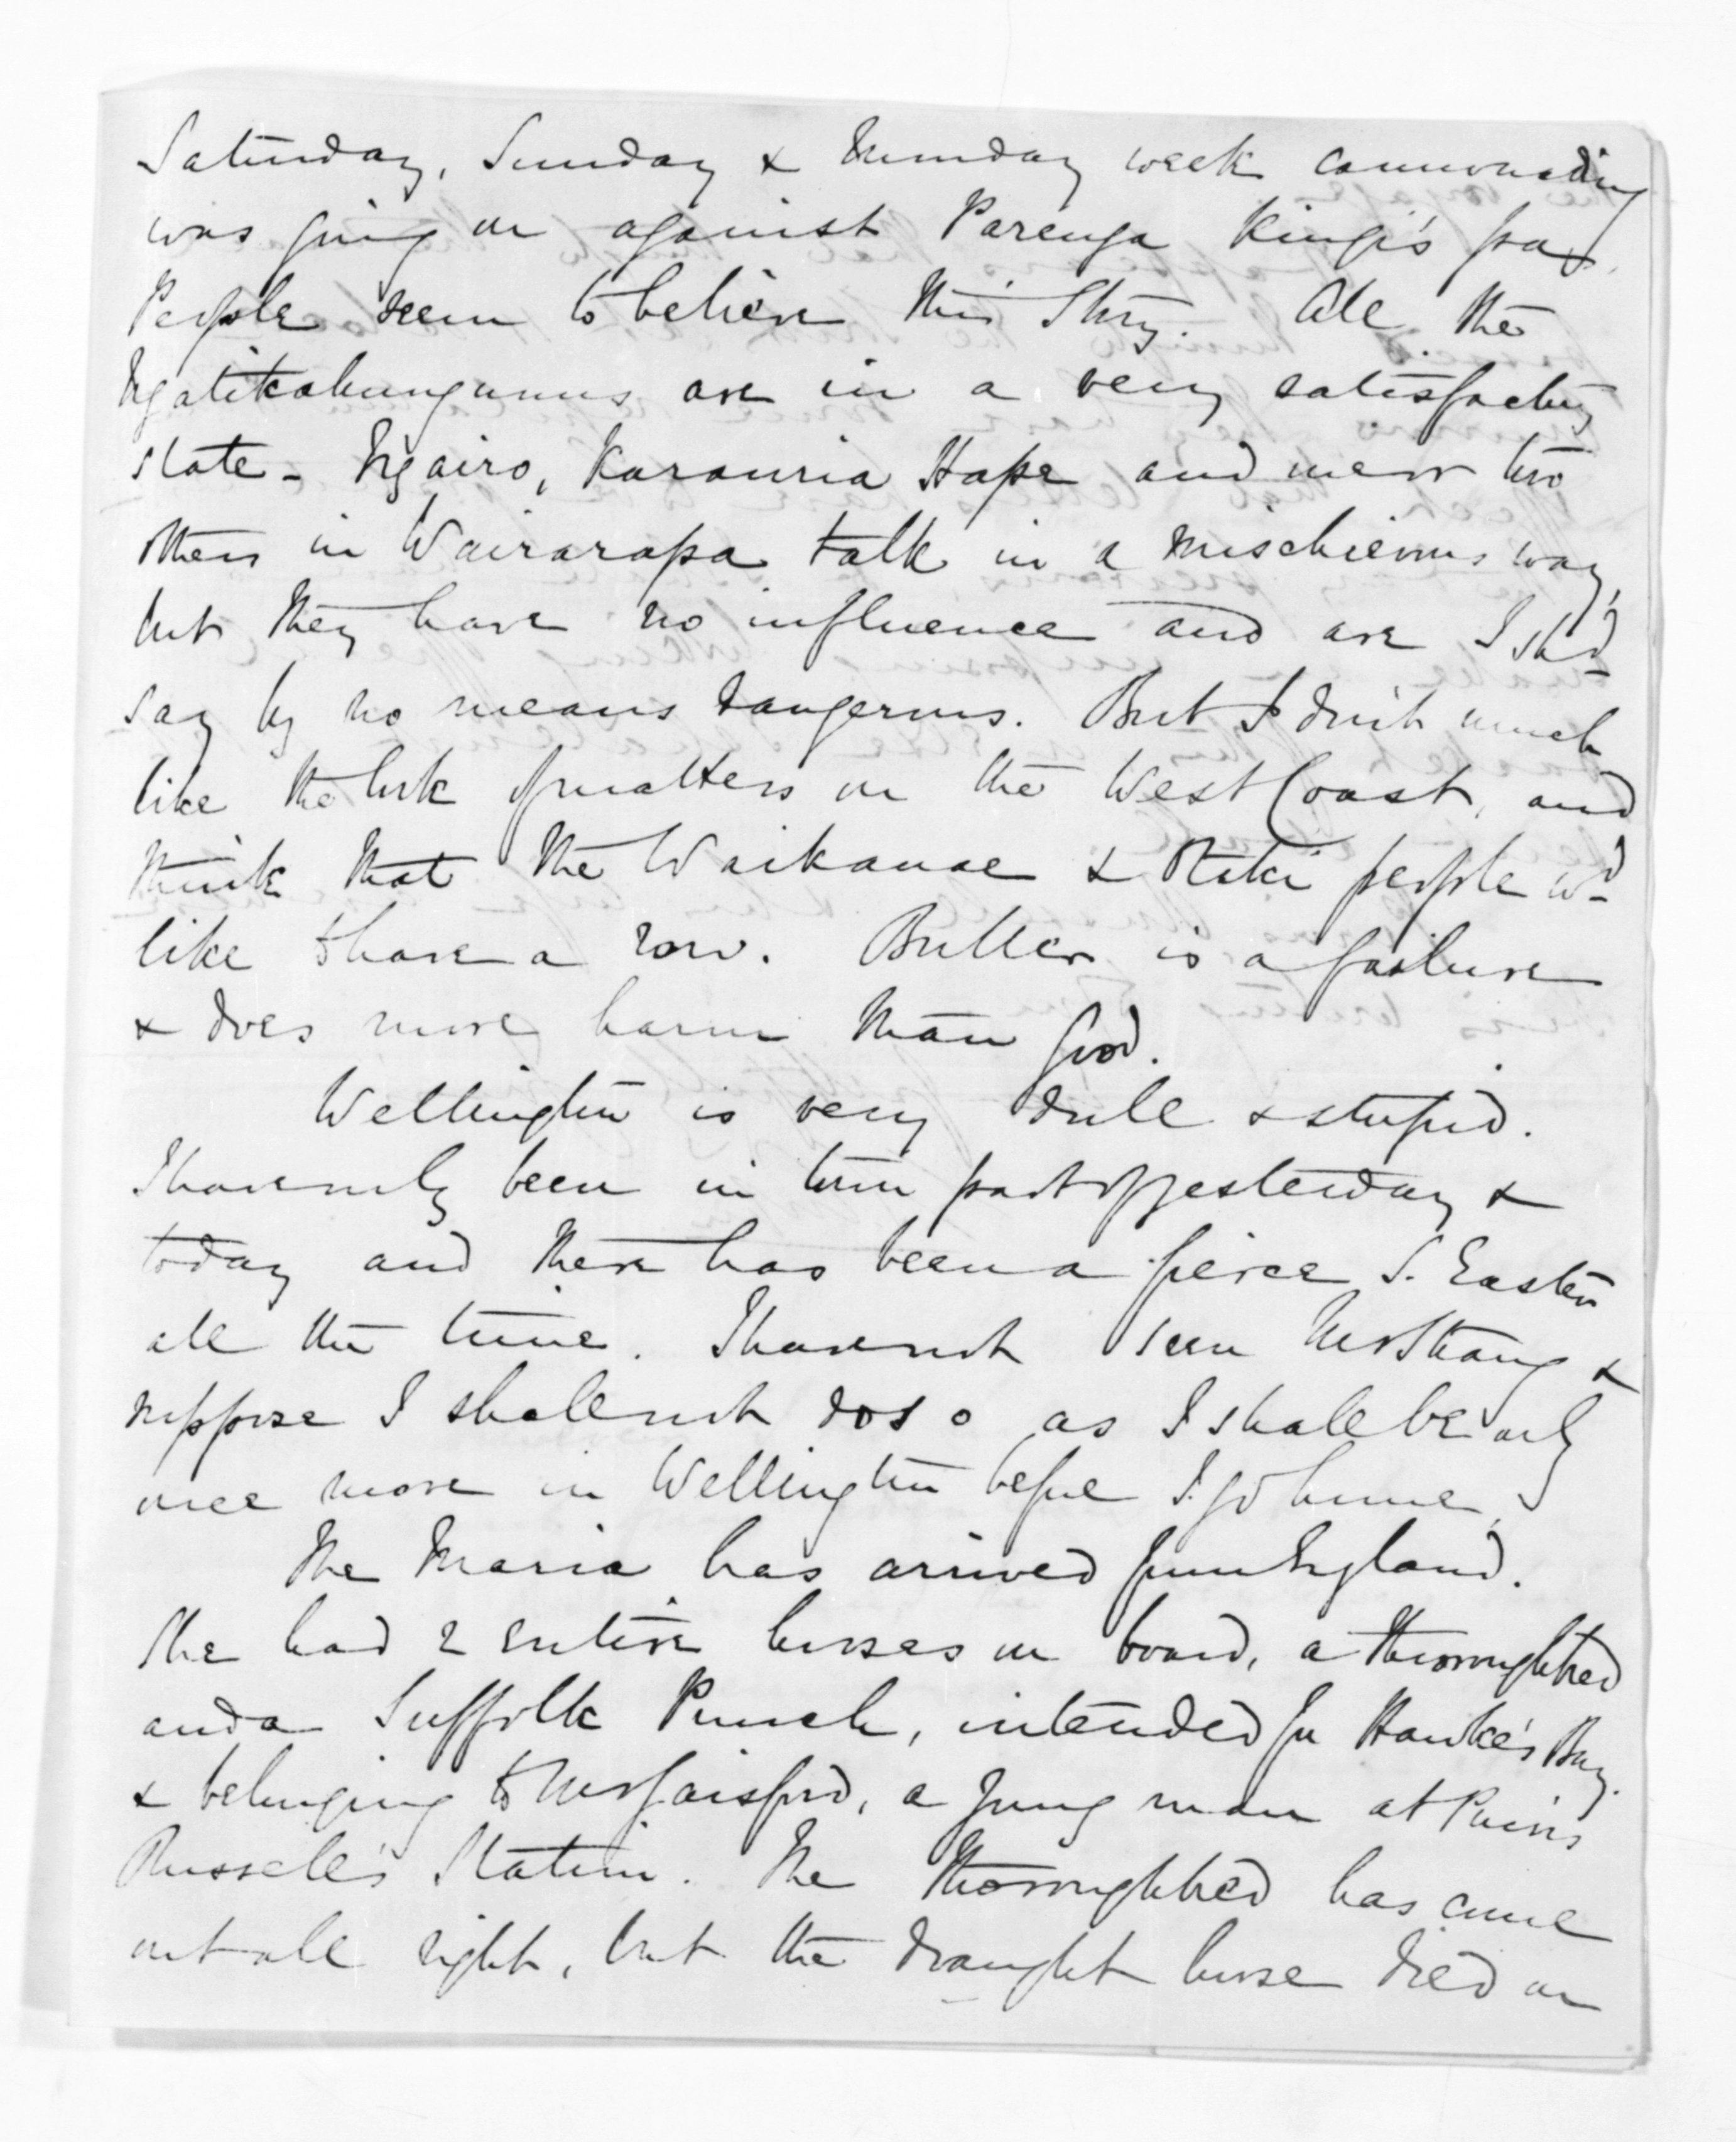 Saturday, Sunday & Monday week cannonading
was going on against Parenga Kingi's pa.
People seem to believe this story. All the
Ngatikahungunus are in a very satisfactory
state - Ngairo, Karauria Hape and one or two
others in Wairarapa talk in a mischievous way,
but they have no influence and are I shd
say by no means dangerous. But I don't much
like the look of matters on the West Coast, and
think that the Waikanae & Otaki people wd
like to have a row. Buller is a failure
& does more harm than good.
Wellington is very dull & stupid.
I have only been in town part of yesterday &
today and there has been a fierce S. Easter
all the time. I have not seen Mr Strang &
suppose I shall not do so as I shall be only
once more in Wellington before I go home.
The Maria has arrived from England.
She had 2 entire horses on board, a thoroughbred
and a Suffolk Punch, intended for Hawke's Bay.
& belonging to Mr Gaisford, a young man at
Russell's Station. The thoroughbred has come
out all right, but the draught horse died on